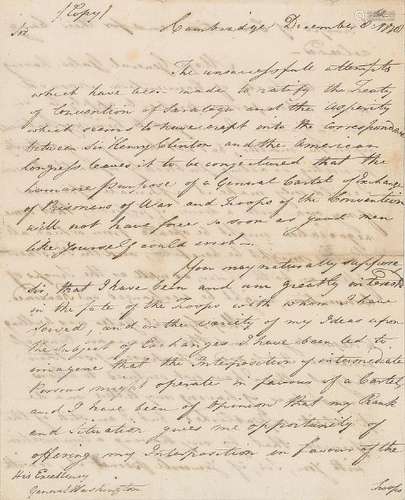 (Copy)
Sir
Cambridge December
The unsuccessfull attempts
which have been made to ratify the Treaty
of Convention of Saratoga and the asperity
which seems to have crept into the correspondance
between Sir Henry Clinton and the American
Congress leaves it to be conjectured that the
humane purpose of a General Cartel of Exchange
of Prisoners of War and Troops of the Convention
will not have force so soon as good men
like Yourself could wish—
You may naturally suppose
Sir that I have been and am greatly interested
in the fate of the Troops with whom I have
served, and in the variety of my Ideas upon
the subject of Exchanges I have been led to
imagine that the Interposition of intermediate
Persons might operate in favour of a Cartel
and I have been of Opinion that my Rank
and Situation gives me opportunity of
offering my Interposition in favour of the
His Excellency
General Washington
Troops